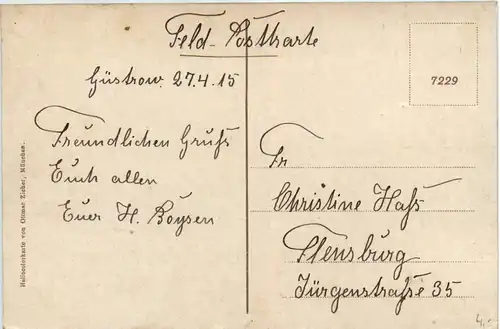 Feld-Postkarte
Güstrow. 27.4.15
Freundlichen Gruß
Euch allen
Euer H. Boysen
7229
Fr
Christine Haß
Flensburg
Jürgenstraße 35
Heliocolorkarte von Ottmar Zieher, München.
4,-